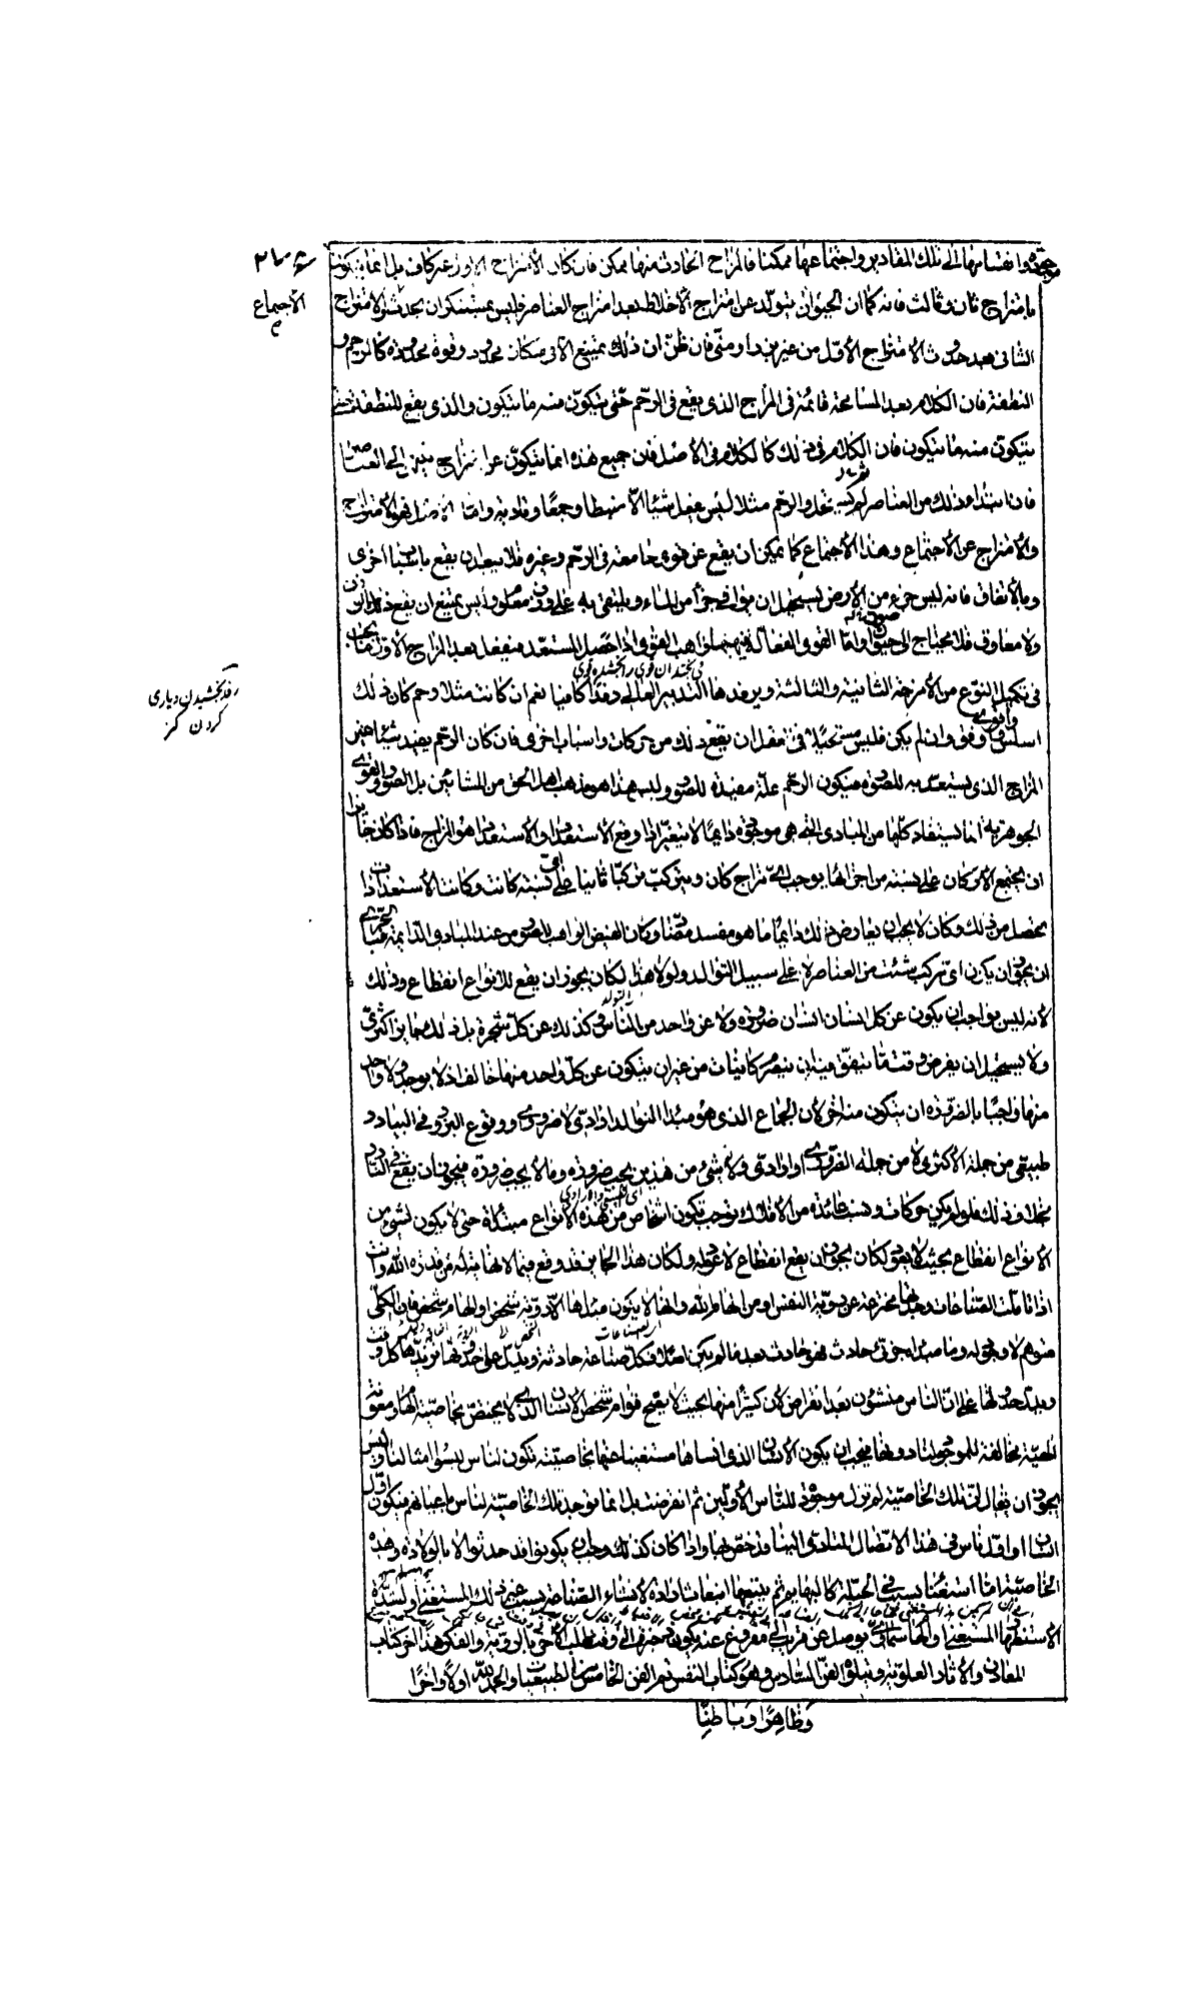 موجودة وانقسامها الى تلك المقادير واجتماعها ممكنا فالمزاج الحادث منها ممكن فان كان الامتزاج الاول غير كاف بل انما يتكون
بامتزاج ثان وثالث فانه كما ان الحيوان يتولد عن امتزاج الاخلاط بعد امتزاج العناصر فليس بمستنكر ان يحدث الامتزاج
الاجتماع
الثانى بعد حدوث الامتزاج الاول من غير بذر او منى فان ظن ان ذلك يمتنع الا فى مكان محدود وقوة محدودة كالرحم و
النطفة فان الكلام بعد المسامحة قائمة فى المزاج الذى يقع فى الرحم حتى يتكون منه ما يتكون والذى يقع للنطفة حتى
يتكون منه ما يتكون فان الكلام فى ذلك كالكلام فى الاصل فان جميع هذه انما يتكون عن امتزاج ينتهى الى العناصر
فان ابتداء ذلك من العناصر والرحم مثلا ليس يفعل شيئا الا ضبطا وجمعا وتادية واما الاصل فهو الامتزاج
والامتزاج عن الاجتماع وهذا الاجتماع كما يمكن ان يقع عن قوى جامعة فى الرحم وغيره فلا يبعد ان يقع باسباب اخرى
وبالاتفاق فانه ليس جزء من الارض يستحيل ان يوافى جزأ من الماء ويلتقى به على وزن معلوم وليس يمتنع ان يقع ذلك
ولا معاوق فلا يحتاج الى واما القوى الفعالة فيهبها واهب القوى اذا حصل المستعد فيفعل بعد المزاج الاول ما يجب
فى تكميل النوع من الامزجة الثانية والثالثة ويرفدها التدبير العالى رفدا كافيا نعم ان كانت مثلا رحم كان ذلك
رفد بخشيدن ويارى
كردن كنز
اسلس واوفق وان لم يكن فليس مستحيلا فى العقل ان يقع ذلك من حركات واسباب اخرى فان كان الرحم يفيد شيئا غير
المزاج الذى يستعد به للصورة فيكون الرحم علة مفيدة للصورة وليس هذا هو مذهب اهل الحق من المشائين بل الصور والقوى
الجوهرية انما يستفاد كلها من المبادى التى هى موجودة دائما لا يتغير اذا وقع الاستعداد والاستعداد هو المزاج فاذا كان جايزا
ان يجتمع الاركان على نسبة من اجزائها يوجب اى مزاج كان ويتركب تركبا ثانيا على اى نسبة كانت وكانت الاستعدادات
يحصل من ذلك وكان لا يجب ان يعارض ذلك دائما ما هو مفسد وكان الفيض الواهب للصور من عند المبادى الدائمة
ان يجوز ان يكون اى تركب شئت من العناصر لا على سبيل التوالد ولولا هذا لكان يجوز ان يقع للانواع انقطاع وذلك
لانه ليس بواجب ان يكون عن كل انسان انسان ضرورة ولا عن واحد من الناس وكذلك عن كل شجرة بل ذلك جايز اكثرى
ولا يستحيل ان يفرض وقت ما يتفق فيه ان ينصرم كائنات من غير ان يتكون عن كل واحد منها خالف اذ لا يوجد ولا واحد
منها واجبا بالضرورة ان يتكون منه اخر لان الجماع الذى هو مبدأ التوالد ارادى لا ضرورى ووقوع البزور فى البيادر
طبيعى من جملة الاكثرى لا من جملة الضرورى او ارادى ولا شئ من هذين يجب ضرورة وما لا يجب ضرورة فيجوز ان يقع فى النادر
خلاف ذلك فلو لم يكن حركات ونسب عائدة من الافلاك يوجب تكون اشخاص من هذه الانواع مبتدئة حتى لا يكون لشئ من
الانواع انقطاع بحيث لا يعود لكان يجوز ان يقع انقطاع لا عود له ولكان هذا الجايز قد وقع فيما لا نهاية له من قدرة الله وانت
اذا تاملت الصناعات وجدتها مخترعة عن روية النفس او من الهام الله وانها لا يكون مبدأها الا روية شخص او الهام شخص فان الكلى
متوهم لا وجود له وما مبدأه جزئى حادث فهو حادث بعد ما لم يكن اصلا فكل صناعة حادثة ويدل على حدوثها تزيدها كل وقت
ويدل حدوثها على ان الناس منشؤون بعد انقراض لان كثيرا منها بحيث لا يصح قوام شخص الانسان الذى لا يختص بخاصية الهام ومعونة
الهية مخالفة للموجود لنا دونها فيجب ان يكون الانسان الذى انشأها مستغنيا عنها بخاصية تكون لناس ليسوا امثالنا وليس
يجوز ان يقال ان تلك الخاصية لم تزل موجودة للناس الاولين ثم انقرضت بل انما توجد تلك الخاصية لناس باعيانهم فيكون اول
انسان او اول ناس فى هذا الاتصال المتادى الينا قد خص بها واذا كان كذلك وجب ان يكونوا قد حدثوا لا بالولادة وهذه
الخاصية اما استغناء بسبب فى الجبلة كالبهائم ثم يتبعها انبعاث ارادة لانشاء الصناعة بسبب غير ذلك المستغنى او لشدة
الاستظهار المستغنى واما الهام سماوى يوصل عن قرب الى مفروغ عنه يكون
المعادن والاثار العلوية ويتلوه الفن السادس وهو كتاب النفس تم الفن الخامس من الطبيعيات والحمد لله اولا واخرا
وظاهرا وباطنا